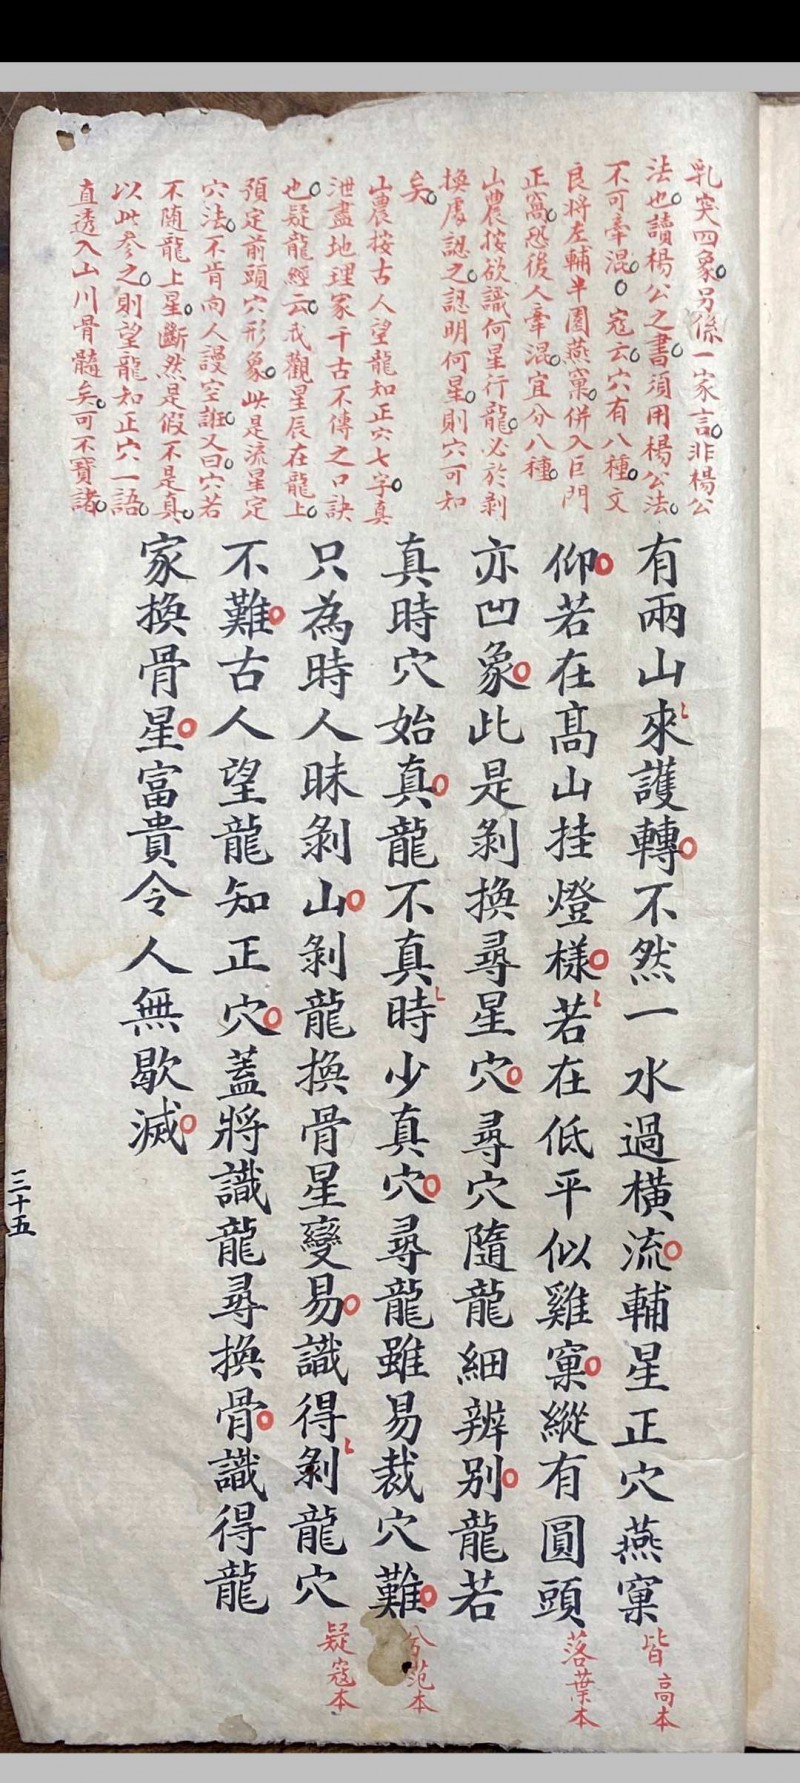 乳突四象另係一家言非楊公
法也讀楊公之書須用楊公法
不可牽混 寇云穴有八種文
良將左輔半園燕窠併入巨門
正窩恐後人牽混宜分八種
山農按欲識何星行龍必於剝
換處認之認明何星則穴可知
矣
山農按古人望龍知正穴七字真
泄盡地理家千古不傳之口訣
也疑龍經云我觀星辰在龍上
預定前頭穴形象此是流星定
穴法不肯向人謾空誑又曰穴若
不隨龍上星斷然是假不是真
以此參之則望龍知正穴一語
直透入山川骨髓矣可不寶諸
有兩山來護轉不然一水過橫流輔星正穴燕窠
仰若在高山挂燈樣若在低平似雞窠縱有圓頭
亦凹象此是剝換尋星穴尋穴隨龍細辨別龍若
真時穴始真龍不真時少真穴尋龍雖易裁穴難
只為時人昧剝山剝龍換骨星變易識得剝龍穴
不難古人望龍知正穴蓋將識龍尋換骨識得龍
家換骨星富貴令人無歇滅
皆高本
落葉本
范本
疑寇本
三十五